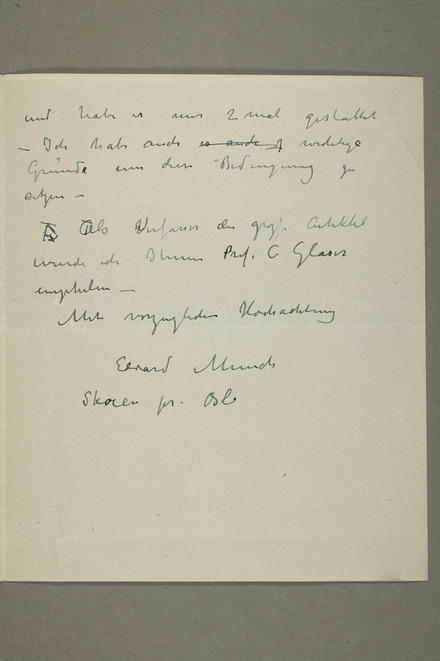 und habe es nur 2 mal gestattet
– Ich habe auch es ande wichtige
Gründe um diese Bedingung zu
setzen –
Als Verfasser der große Artikkel
wurde ich Ihnen Prof. C Glaser
empfelen –
Mit vorzuglicher Hochachtung
Edvard Munch
Skøien pr. Oslo